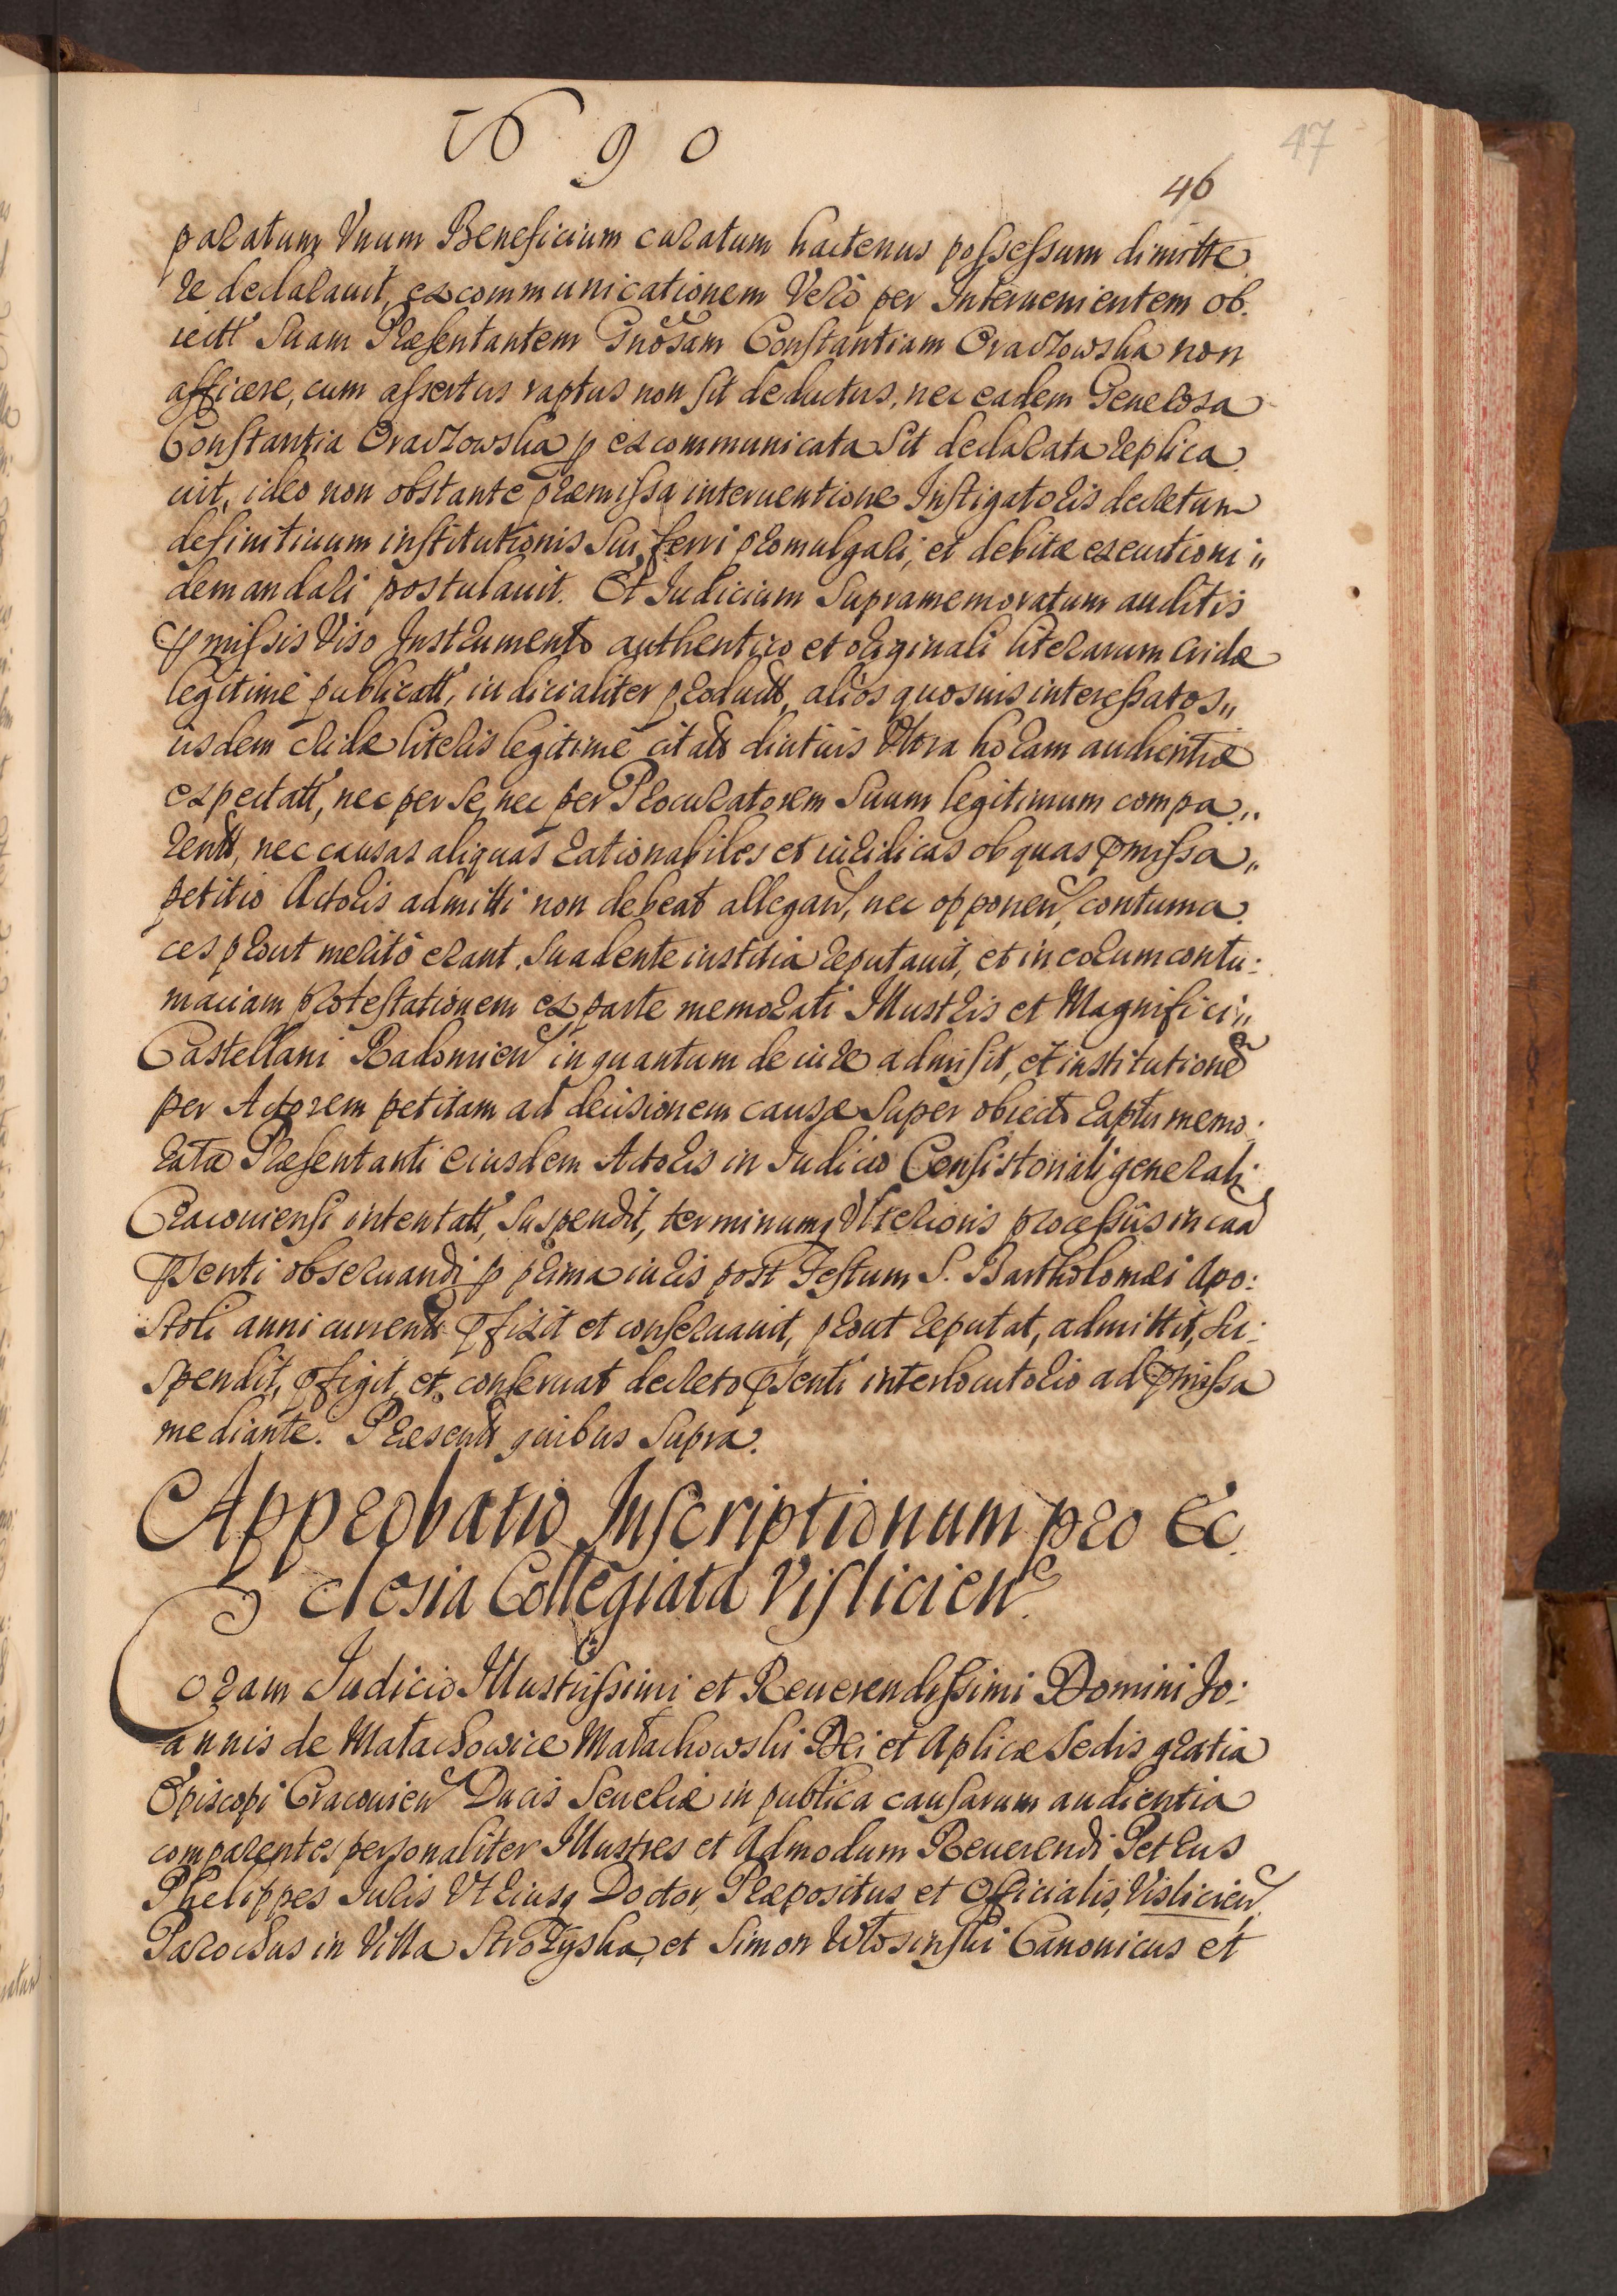 1690
47
46
paratum Vnum Beneficium curatum hactenus possessum dimitte
re declarauit, excommunicationem Verò per Interuenientem ob.
iectt' Suam Præsentantem Gnôsam Constantiam Oraczowska non
afficere, cum assertus raptus non sit deductus, nec eadem Generosa
Constantia Oraczowska p excommunicata Sit declarata replica.
uit, ideo non obstante præmissa interuentione Instigatoris decretum
definitiuum institutionis Sui ferri promulgari, et debitæ executioni "
demandari postulauit. Et Iudicium Supramemoratum auditis
pmissis Viso Instrumento authentico et originali literarum Cridæ
legitimè publicatt', iudicialiter productt, aliòs quosuis interessatos "
iisdem Cridæ literis legitimè citatt diutius Vltra horam audientiæ
expectatt', nec per Se, nec per Procuratorem Suum legitimum compa "
rentt, nec causas aliquas rationabiles et iuridicas ob quas pmissa "
petitio Actoris admitti non debeat allegan, nec opponen, contuma.
ces prout meritò erant. Suadente iustitia reputauit, et in eorum contu:
maciam protestationem ex parte memorati Illustris et Magnifici "
Castellani Radomien in quantum de iure admisit, et institutione
per Actorem petitam ad decisionem causæ Super obiecto raptu memo:
ratæ Præsentanti eiusdem Actoris in Iudicio Consistoriali generali
Cracouiensi intentatt', Suspendit, terminumq Vlterioris processûs in caa
psenti obseruandi p prima iuris post Festum S. Bartholomæi Apo:
stoli anni currentt pfixit et conseruauit, prout reputat, admittit, Su:
spendit, pfigit, et conseruat decreto psenti interlocutorio ad pmissa
mediante. Præsentt quibus Supra.
Approbatio Inscriptionum pro Ec
clesia Collegiata Vislicien.
Coram Iudicio Illustrissimi et Reuerendissimi Domini Jo:
annis de Małachowice Małachowski Dei et Aplicæ Sedis gratia
Episcopi Cracouien Ducis Seueriæ in publica causarum audientia
comparentes personaliter Illustres et Admodum Reuerendi Petrus
Phelippes Iuris Vtriusq Doctor, Præpositus et Officialis Vislicien,
Parochus in Villa Strożyska, et Simon Włosinski Canonicus et